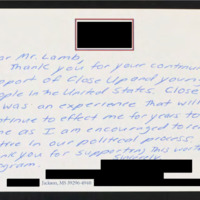 ar Mr. Lamb,
Thank you for your continu
pport of Close Up and young
ople in the United States. Close
was an experience that will
ntinue to effect me for years to
me as I am encouraged to be
tive in our political process.
ank you for supporting this worthy
ogram.
Sincerely,
Jackson, MS 39296-4940